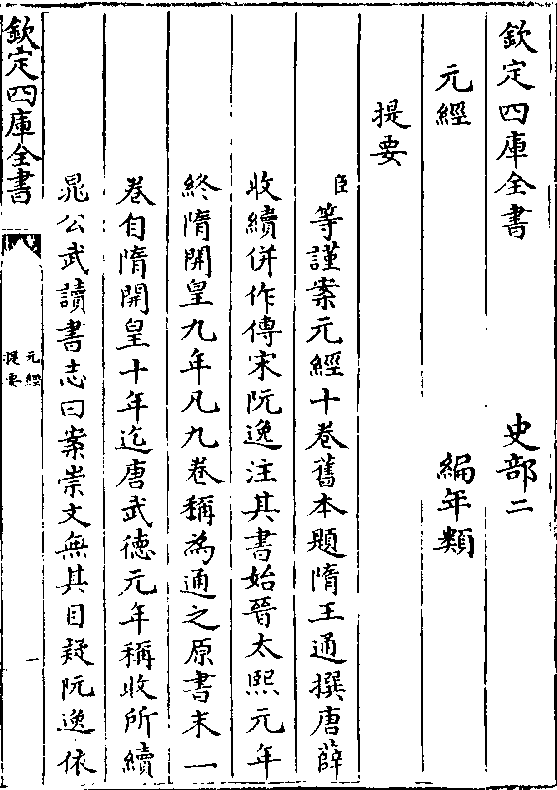 欽定四庫全書 史部二
元經 編年類
提要
臣等謹案元經十卷舊本題隋王通撰唐薛
收續併作傳宋阮逸注其書始晉太熙元年
終隋開皇九年凡九卷稱為通之原書末一
卷自隋開皇十年迄唐武德元年稱收所續
晁公武讀書志曰案崇文無其目疑阮逸依
欽定四庫全書
元經
提要
一